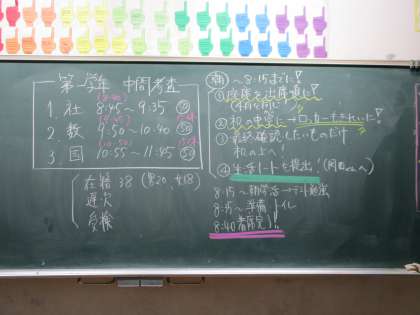 第一学年 中間考査
1. 社 8:45～9:35 50
2. 数 9:50～10:40 50
3. 国 10:55～11:45 50
在籍 38 (男20、女18)
遅欠
受検
朝 ～8:15までに!
① 座席を出席順に!
② 机の中空に→ロッカーもきれいに!
③ 最終確認したいものだけ
机の上へ!
④ 生活ノートを提出!
8:15～朝学活→テスト勉強
8:35～準備 トイレ
8:40 着席完了!!